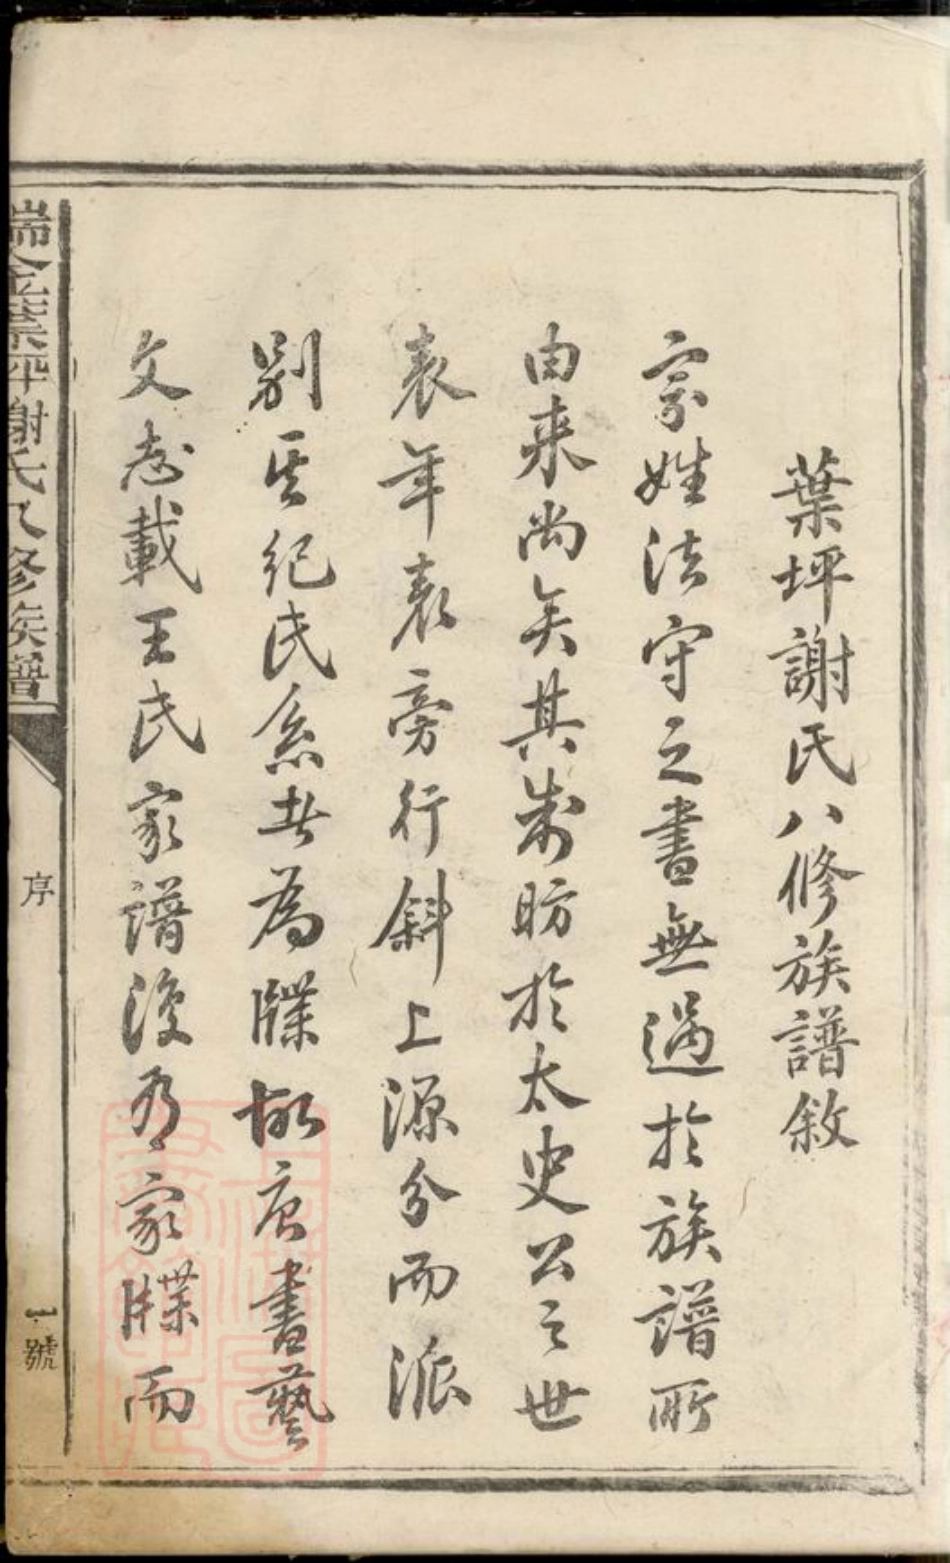 葉坪謝氏八修族譜敘
宗姓法守之書無過於族譜所
由来尚矣其制昉於太史公之世
表年表旁行斜上源分而派
别其纪氏系者為牒故唐書藝
文志載王氏家譜復有家牒而
瑞金葉坪謝氏八修族譜
序
一號